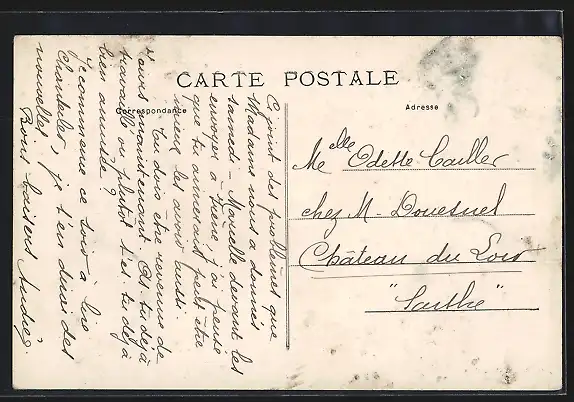 CARTE POSTALE
Correspondance
Adresse
Ci joint des problèmes que
Madame nous a donnés
samedi - Marcelle devant les
envoyer à j'ai pensé
que tu aimerais peut être
mieux les avoir aussi.
Tu dois etre revenue de
maintenant. As tu déjà
travaillé ou plutôt t'es tu déjà
bien amusée ?
Je commence ce soir à lire
Chantecler, je t'en dirai des
nouvelles.
Bons baisers Andrée.
Melle Odette Cailler
chez M - Douesnel
Château du Loir
"Sarthe"